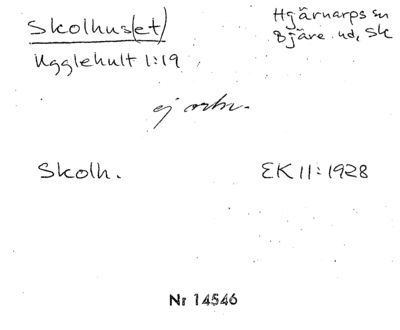 Skolhus(et)
Hjärnarps sn
Bjäre hd, Sk
Ugglehult 1:19
ej
Skolh.
EK II: 1928
Nr 14546